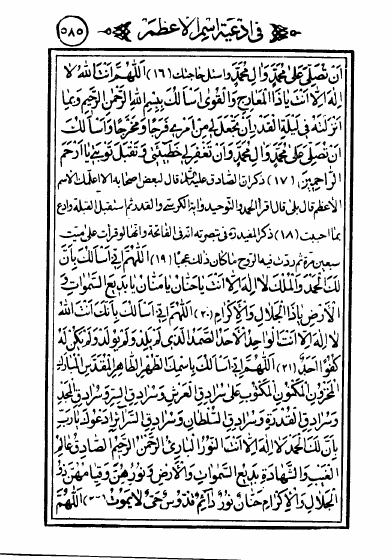 في ادعية اسم الاعظم
٥٨٥
ان تصلى على محمد وال محمد واسئل حاجتك (١٦) اللهم انت الله لا
اله الا انت يا ذا المعارج والقوى اسالك ببسم الله الرحمن الرحيم وبما
انزلته في ليلة القدر ان تجعل لي من امري فرجا ومخرجا واسالك
ان تصلى على محمد وال محمد وان تغفر لي خطيئتي وتقبل توبتي يا ارحم
الراحمين (١٧) ذكر ان الصادق عليه السلام قال لبعض اصحابه الا اعلمك الاسم
الاعظم قال بلى قال اقرا الحمد والتوحيد واية الكرسي والقدر ثم استقبل القبلة وادع
بما احببت (١٨) ذكر المفيد في تبصرته انه في الفاتحة وانها لو قرات على ميت
سبعين مرة ثم ردت فيه الروح ما كان ذلك عجبا (١٩) اللهم اني اسالك بان
لك الحمد والملك لا اله الا انت يا حنان يا منان يا بديع السموات و
الارض يا ذا الجلال والاكرام (٢٠) اللهم اني اسالك بانك انت الله
لا اله الا انت الواحد الاحد الصمد الذي لم يلد ولم يولد ولم يكن له
كفوا احد (٢١) اللهم اني اسالك باسمك الطهر الطاهر المقدس المبارك
المخزون المكنون المكتوب على سرادق العرش وسرادق السر وسرادق المجد
وسرادق القدرة وسرادق السلطان وسرادق السرائر ادعوك يا رب
بان لك الحمد لا اله الا انت النور البارئ الرحمن الرحيم الصادق عالم
الغيب والشهادة بديع السموات والارض ونورهن وقيامهن ذو
الجلال والاكرام حنان نور دائم قدوس حي لا يموت (٢٢) اللهم